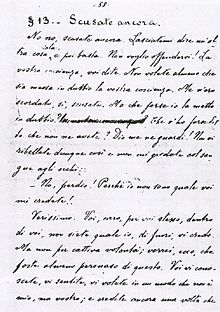 - 58 -
§ 13. - Scusate ancora.
No no, scusate ancora. Lasciatemi dire un'al
tra cosa e poi basta. Non voglio offendervi. La
vostra coscienza, voi dite. Non volete almeno che
sia messa in dubbio la vostra coscienza. Me n'ero
scordato, sì, scusate. Ma che forse io la metto
in dubbio?
che non ne avete? Dio me ne guardi! Non vi
ribellate dunque così e non mi guardate col san
gue agli occhi:
- No, perdio! Perché io non sono quale voi
mi credete!
Verissimo. Voi, caro, per voi stesso, dentro
di voi, non siete quale io, di fuori, vi credo.
Ma non per cattiva volontà; vorrei, ecco, che
foste almeno persuaso di questo. Voi vi cono-
scete, vi sentite, vi volete in un modo che non è
mio, ma vostro; e credete ancora una volta che